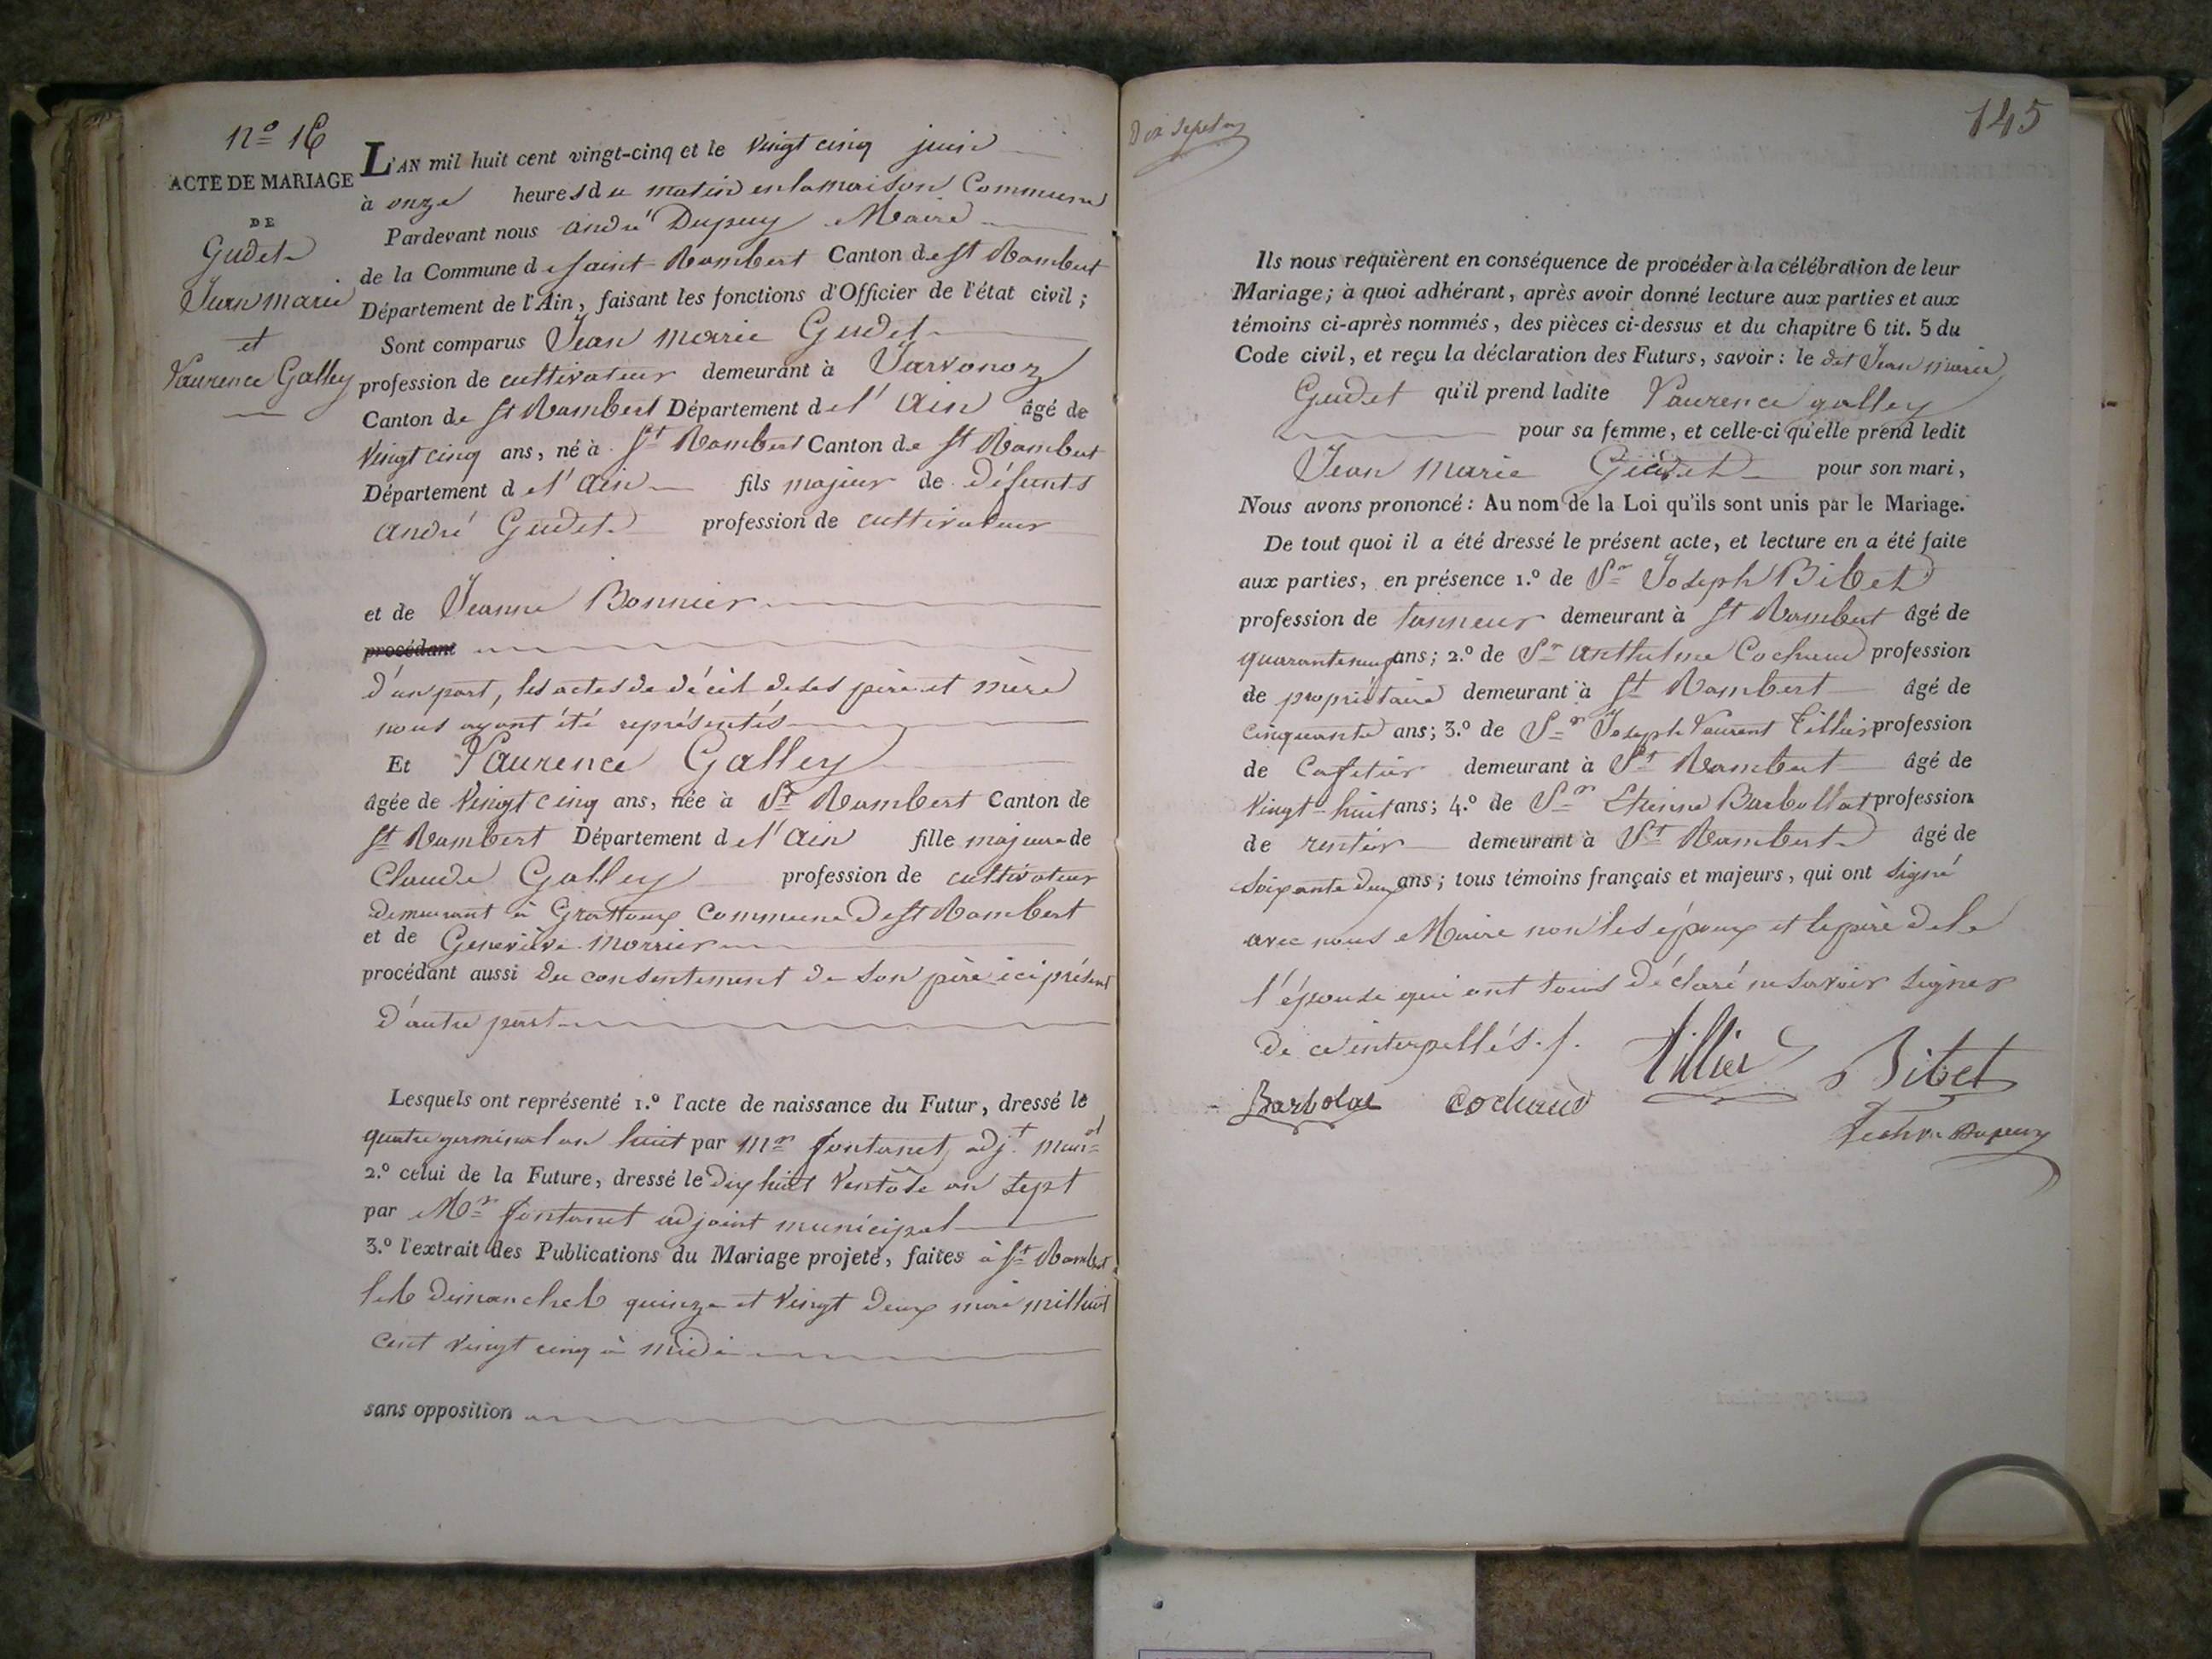 n° 16
ACTE DE MARIAGE
DE
Gudet
Jean marie
et
Laurence Galley
L'AN mil huit cent vingt-cinq et le vingt cinq juin
à onze heures du matin en la maison Commune
Pardevant nous andré Dupuy Maire
de la Commune de saint Rambert Canton de St Rambert
Département de l'Ain, faisant les fonctions d'Officier de l'état civil ;
Sont comparus Jean marie Gudet
profession de cultivateur demeurant à Javornoz
Canton de St Rambert Département de l'Ain âgé de
vingt cinq ans, né à St Rambert Canton de St Rambert
Département de l'Ain fils majeur de défunts
andré Gudet profession de cultivateur
et de Jeanne Bonnier
procédant
d'un part, les actes de décès de ses père et mère
nous ayant été représentés
Et Laurence Galley
âgée de vingt cinq ans, née à St Rambert Canton de
St Rambert Département de l'Ain fille majeure de
Claude Galley profession de cultivateur
demeurant à Grattoux Commune de St Rambert
et de Geneviève morrier
procédant aussi du consentement de son père ici présent
d'autre part
Lesquels ont représenté 1.° l'acte de naissance du Futur, dressé le
quatre germinal an huit par mr fontanet, adjt munal
2.° celui de la Future, dressé le dix huit Ventôse an sept
par Mr fontanet adjoint municipal
3.° l'extrait des Publications du Mariage projeté, faites à St Rambert
les dimanches quinze et vingt deux mai mil huit
cent vingt cinq à midi
sans opposition
145
Ils nous requièrent en conséquence de procéder à la célébration de leur
Mariage ; à quoi adhérant, après avoir donné lecture aux parties et aux
témoins ci-après nommés, des pièces ci-dessus et du chapitre 6 tit. 5 du
Code civil, et reçu la déclaration des Futurs, savoir : le dit Jean marie
Gudet qu'il prend ladite Laurence galley
pour sa femme, et celle-ci qu'elle prend ledit
Jean Marie Gudet pour son mari,
Nous avons prononcé : Au nom de la Loi qu'ils sont unis par le Mariage.
De tout quoi il a été dressé le présent acte, et lecture en a été faite
aux parties, en présence 1.° de Sr Joseph Bibet
profession de tanneur demeurant à St Rambert âgé de
quarante neuf ans ; 2.° de Sr anthelme Cochaud profession
de propriétaire demeurant à St Rambert âgé de
cinquante ans ; 3.° de Sr Joseph Laurent Tillier profession
de Cafetier demeurant à St Rambert âgé de
vingt-huit ans ; 4.° de Sr Etienne Barbollat profession
de rentier demeurant à St Rambert âgé de
soixante deux ans ; tous témoins français et majeurs, qui ont signé
avec nous Maire non les époux et le père de le
l'épouse qui ont tous déclaré ne savoir signer
de ce interpellés ./.
Tillier Bibet
Barbolat Cochaud
Dupuy